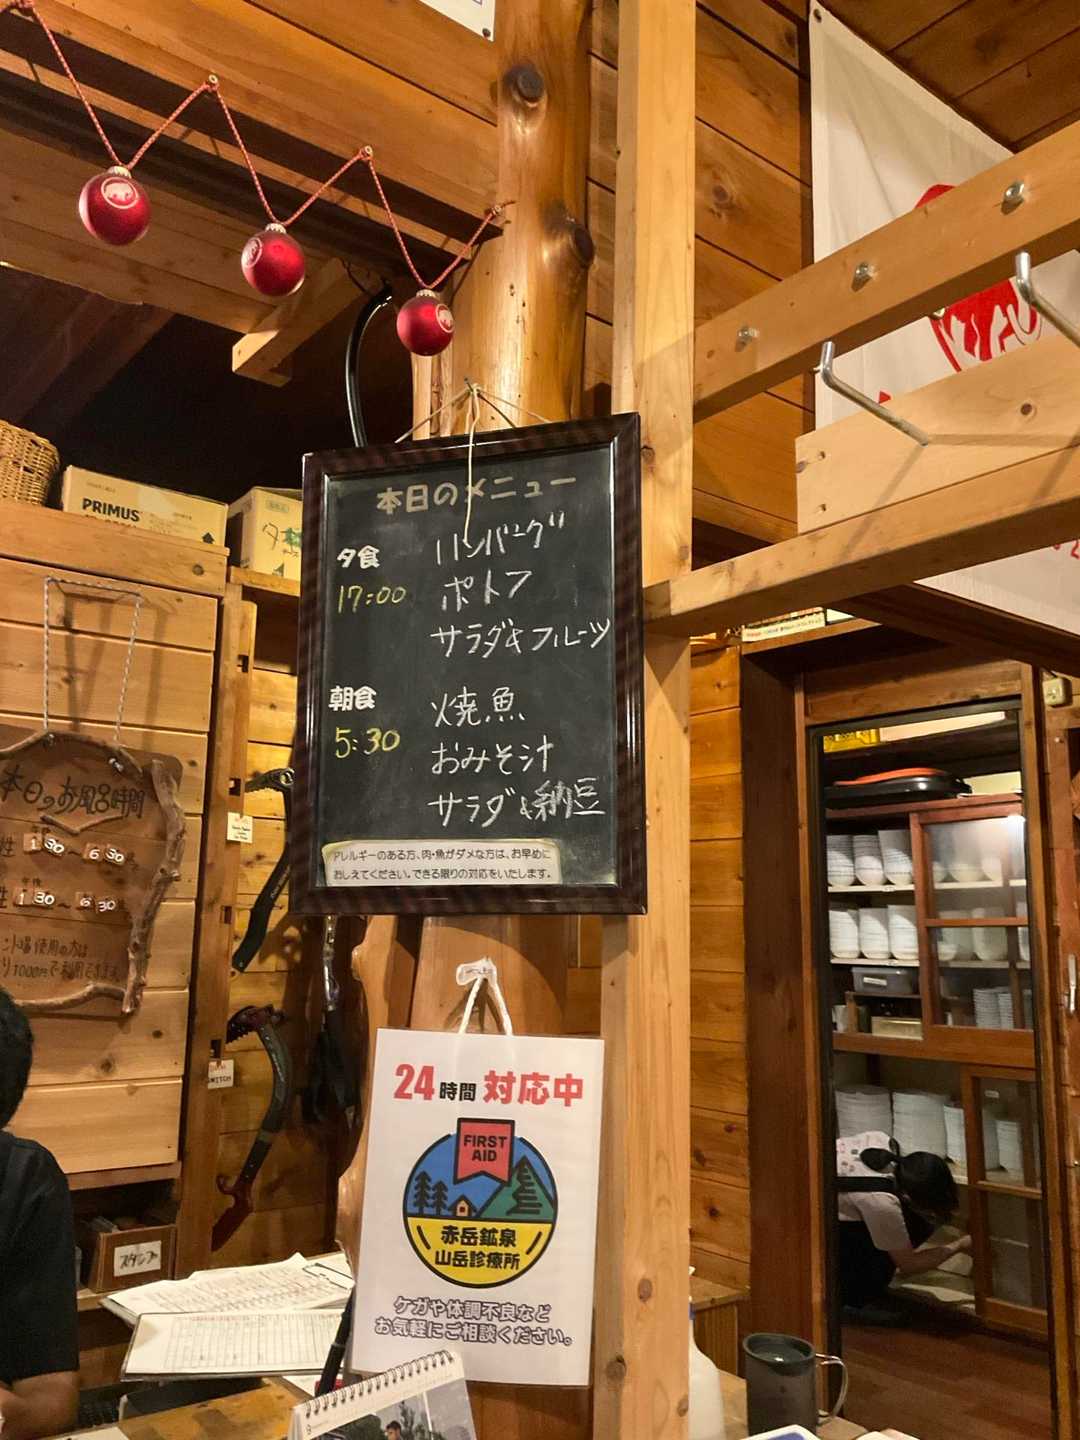 PRIMUS
本日のメニュー
夕食
17:00
ハンバーグ
ポトフ
サラダ&フルーツ
朝食
5:30
焼魚
おみそ汁
サラダ&納豆
アレルギーのある方、肉・魚がダメな方は、お早めに
おしえてください。できる限りの対応をいたします。
本日のお風呂時間
性 午後 1:30~6:30
性 午後 1:30~6:30
使用の方は
1000円で利用できます
SWITCH
スタンプ
24時間 対応中
FIRST
AID
赤岳鉱泉
山岳診療所
ケガや体調不良など
お気軽にご相談ください。